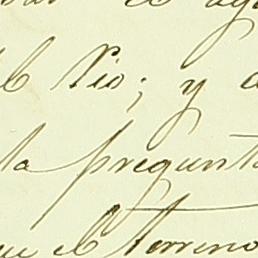 el Rio; y a
la pregunta
que el terreno